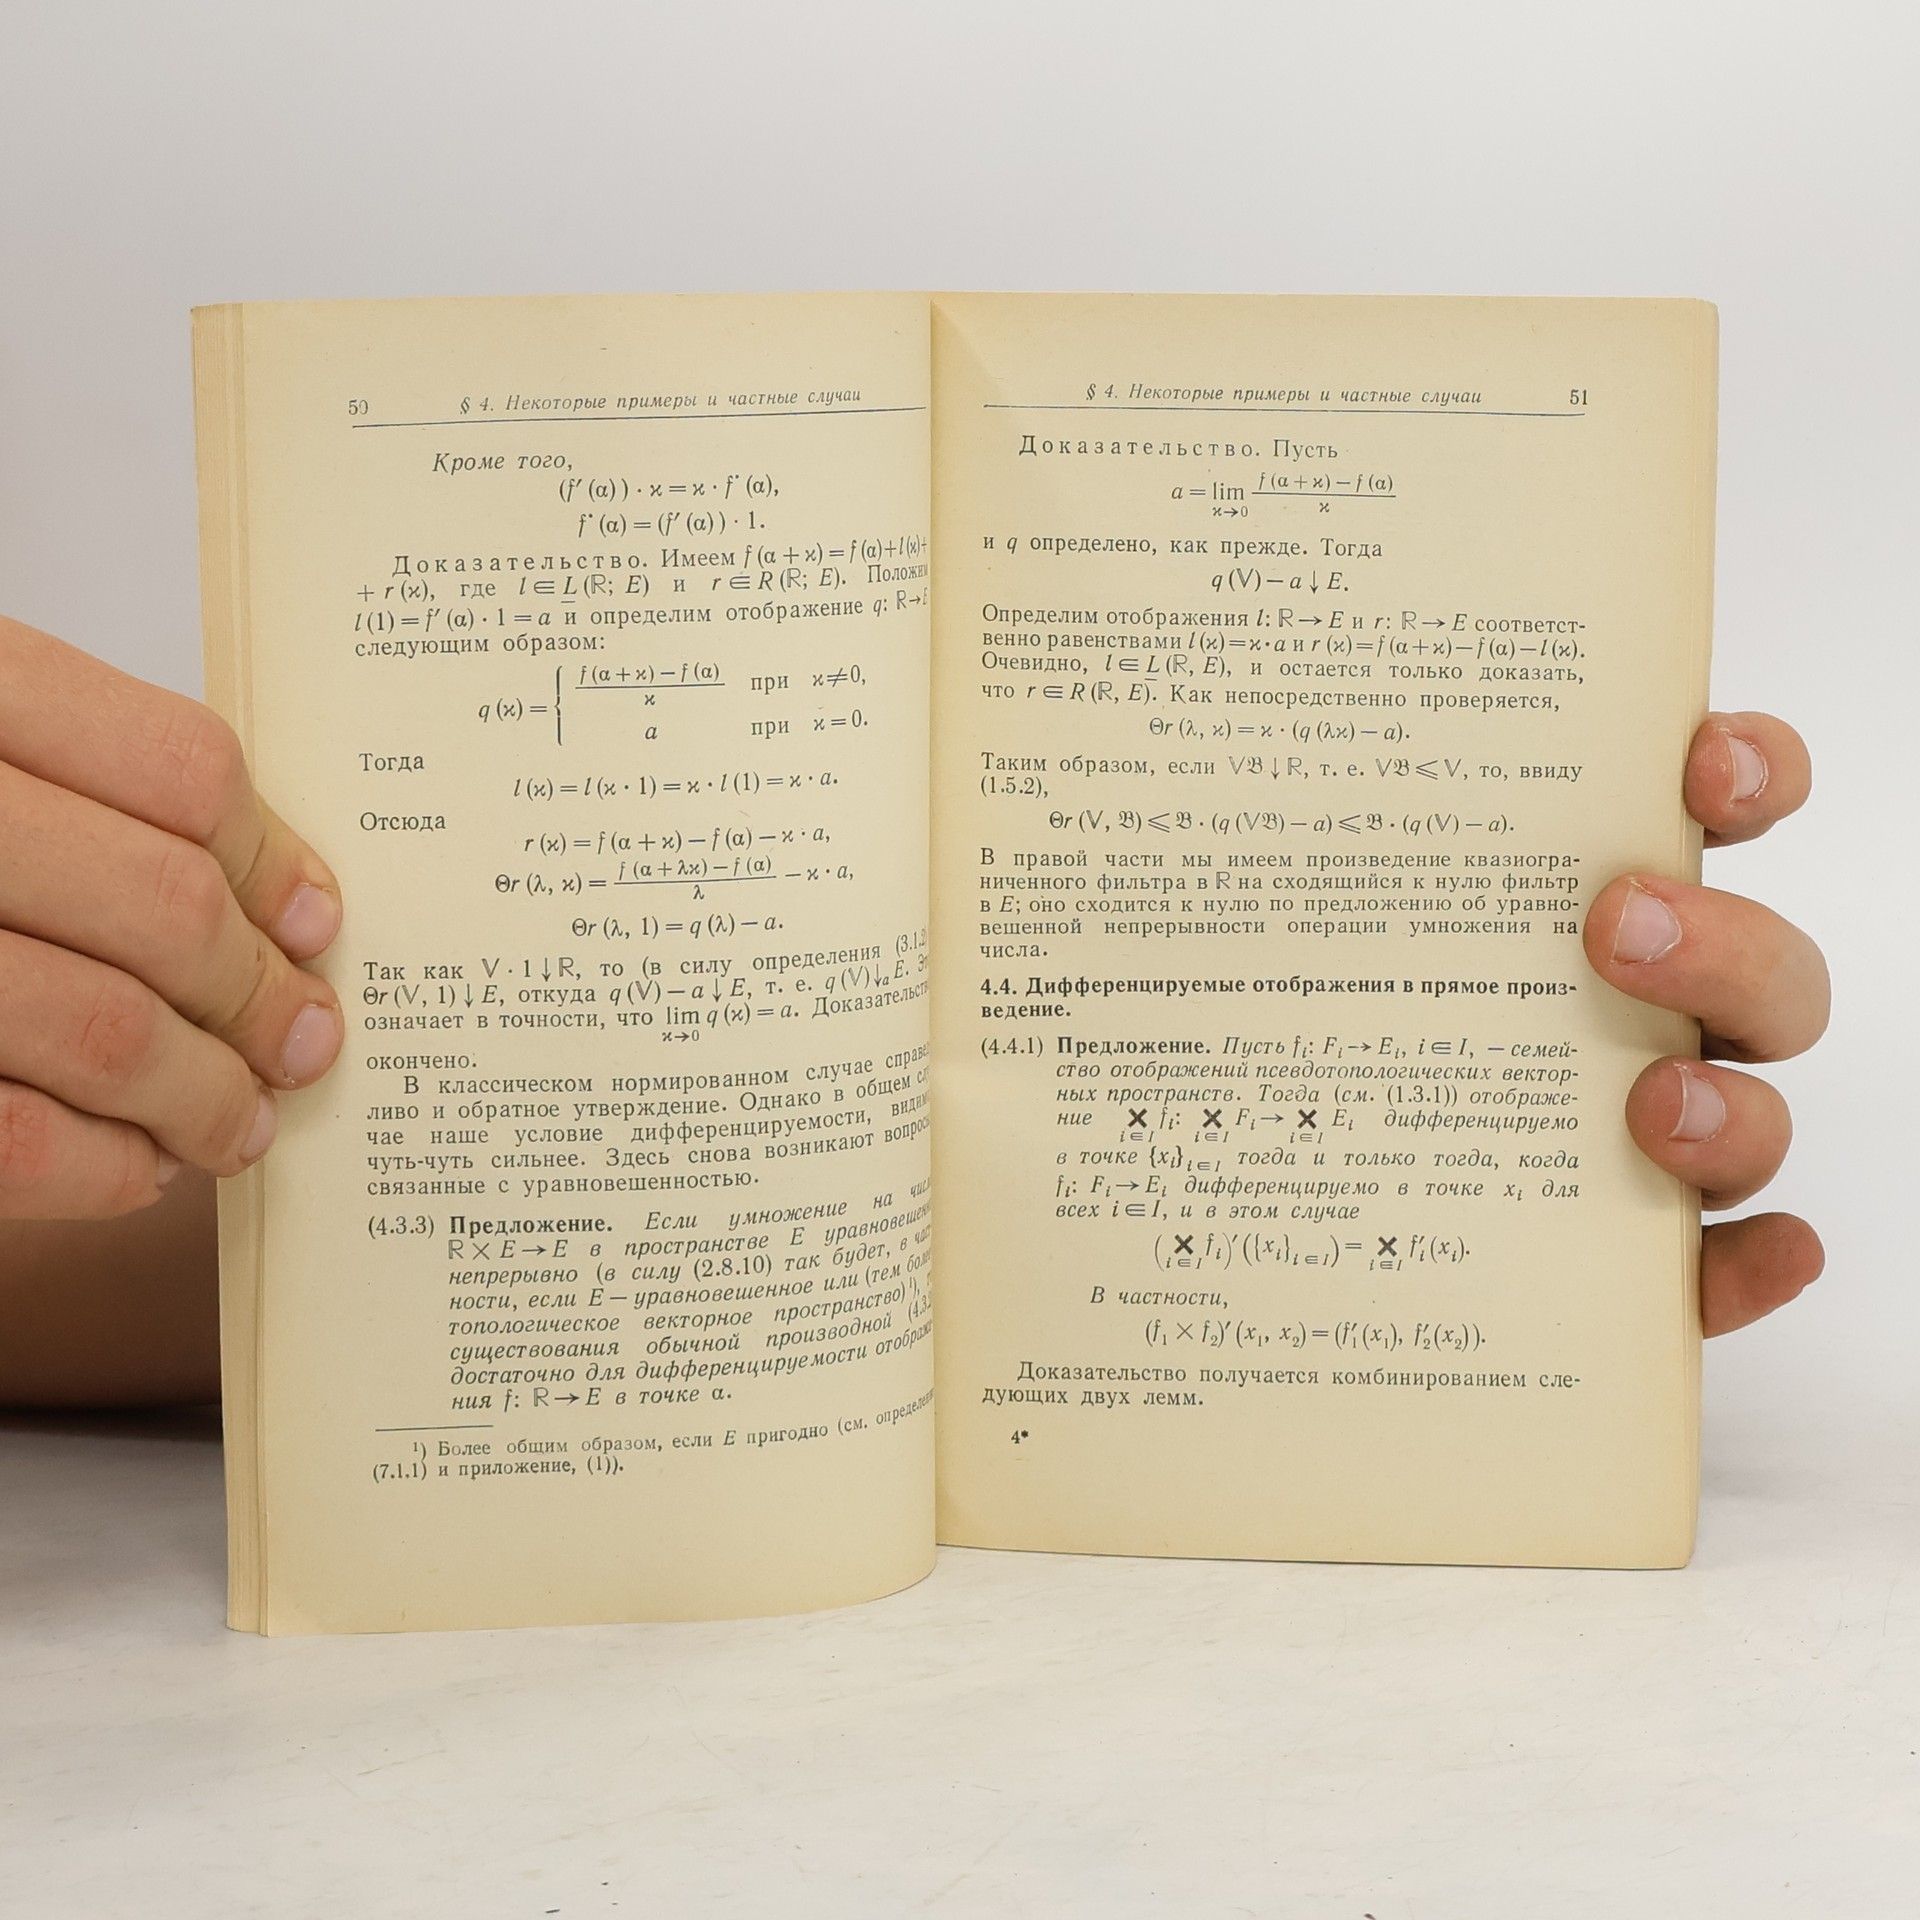 50 § 4. Некоторые примеры и частные случаи
Кроме того,
(f′ (α)) · ϰ = ϰ · f˙ (α),
f˙ (α) = (f′ (α)) · 1.
Доказательство. Имеем f (α + ϰ) = f (α) + l (ϰ) +
+ r (ϰ), где l ∈ L (ℝ; E) и r ∈ R (ℝ; E). Положим
l (1) = f′ (α) · 1 = a и определим отображение q: ℝ → E
следующим образом:
q (ϰ) = { (f (α + ϰ) − f (α)) / ϰ при ϰ ≠ 0,
a при ϰ = 0.
Тогда
l (ϰ) = l (ϰ · 1) = ϰ · l (1) = ϰ · a.
Отсюда
r (ϰ) = f (α + ϰ) − f (α) − ϰ · a,
Θr (λ, ϰ) = (f (α + λϰ) − f (α)) / λ − ϰ · a,
Θr (λ, 1) = q (λ) − a.
Так как 𝕍 · 1 ↓ ℝ, то (в силу определения (3.1.2)
Θr (𝕍, 1) ↓ E, откуда q (𝕍) − a ↓ E, т. е. q (𝕍) ↓ₐ E.
означает в точности, что lim q (ϰ) = a. Доказательст
ϰ→0
окончено.
В классическом нормированном случае справед
ливо и обратное утверждение. Однако в общем слу
чае наше условие дифференцируемости, видимо
чуть-чуть сильнее. Здесь снова возникают вопросы
связанные с уравновешенностью.
(4.3.3) Предложение. Если умножение на числ
ℝ × E → E в пространстве E уравновешенн
непрерывно (в силу (2.8.10) так будет, в част
ности, если E — уравновешенное или (тем более
топологическое векторное пространство) ¹),
существования обычной производной (4.3.2
достаточно для дифференцируемости отображе
ния f: ℝ → E в точке α.
¹) Более общим образом, если E пригодно (см. определени
(7.1.1) и приложение, (1)).
§ 4. Некоторые примеры и частные случаи 51
Доказательство. Пусть
a = lim (f (α + ϰ) − f (α)) / ϰ
ϰ→0
и q определено, как прежде. Тогда
q (𝕍) − a ↓ E.
Определим отображения l: ℝ → E и r: ℝ → E соответст-
венно равенствами l (ϰ) = ϰ · a и r (ϰ) = f (α + ϰ) − f (α) − l (ϰ).
Очевидно, l ∈ L (ℝ, E), и остается только доказать,
что r ∈ R (ℝ, E). Как непосредственно проверяется,
Θr (λ, ϰ) = ϰ · (q (λϰ) − a).
Таким образом, если 𝕍𝔅 ↓ ℝ, т. е. 𝕍𝔅 ⩽ 𝕍, то, ввиду
(1.5.2),
Θr (𝕍, 𝔅) ⩽ 𝔅 · (q (𝕍𝔅) − a) ⩽ 𝔅 · (q (𝕍) − a).
В правой части мы имеем произведение квазиогра-
ниченного фильтра в ℝ на сходящийся к нулю фильтр
в E; оно сходится к нулю по предложению об уравно-
вешенной непрерывности операции умножения на
числа.
4.4. Дифференцируемые отображения в прямое произ-
ведение.
(4.4.1) Предложение. Пусть fᵢ: Fᵢ → Eᵢ, i ∈ I, — семей-
ство отображений псевдотопологических вектор-
ных пространств. Тогда (см. (1.3.1)) отображе-
ние × fᵢ: × Fᵢ → × Eᵢ дифференцируемо
i ∈ I i ∈ I i ∈ I
в точке {xᵢ}i ∈ I тогда и только тогда, когда
fᵢ: Fᵢ → Eᵢ дифференцируемо в точке xᵢ для
всех i ∈ I, и в этом случае
( × fᵢ)′ ({xᵢ}i ∈ I) = × f′ᵢ (xᵢ).
i ∈ I i ∈ I
В частности,
(f₁ × f₂)′ (x₁, x₂) = (f′₁ (x₁), f′₂ (x₂)).
Доказательство получается комбинированием сле-
дующих двух лемм.
4*